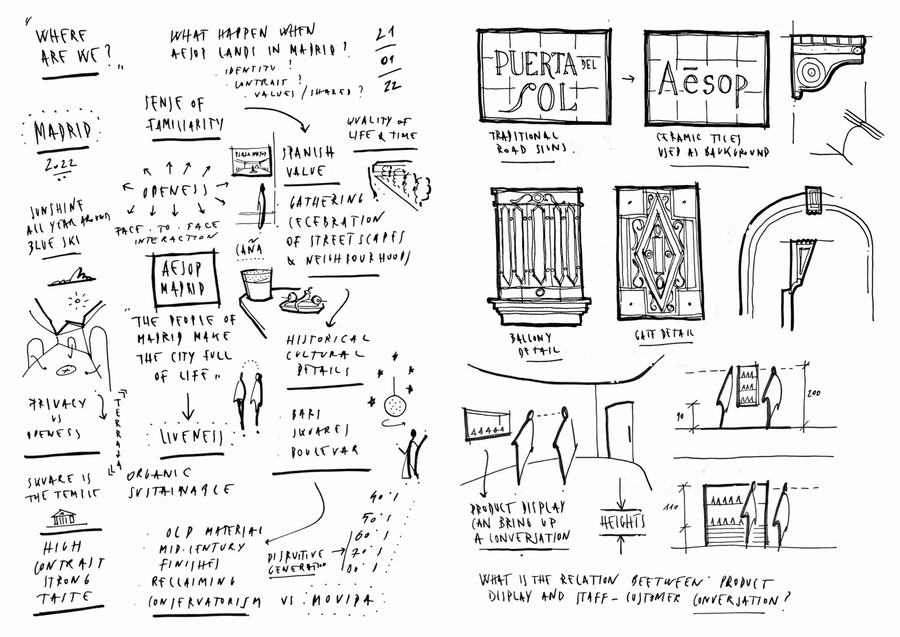 WHERE
ARE WE?
MADRID
2022
SUNSHINE
ALL YEAR AROUND
BLUE SKI
PRIVACY
VS
OPENESS
TERRAZA
SQUARE IS
THE TEMPLE
HIGH
CONTRAST
STRONG
TASTE
WHAT HAPPEN WHEN
AESOP LANDS IN MADRID?
. IDENTITY?
. CONTRAST?
. VALUES / SHARED?
21
01
22
SENSE OF
FAMILIARITY
OPENESS
FACE . TO . FACE
INTERACTION
AESOP
MADRID
"THE PEOPLE OF
MADRID MAKE
THE CITY FULL
OF LIFE"
LIVENESS
. ORGANIC
SUSTAINABLE
. OLD MATERIAL
. MID-CENTURY
FINISHES
. RECLAIMING
. CONSERVATORISM VS MOVIDA
PLAZA MAYOR
CAÑA
SPANISH
VALUE
QUALITY OF
LIFE & TIME
. GATHERING
. CELEBRATION
OF STREETSCAPES
& NEIGHBOURHOODS
HISTORICAL
CULTURAL
DETAILS
. BARS
. SQUARES
. BOULEVAR
40'S
50'S
60'S
70'S
80'S
DISRUPTIVE
GENERATION
PUERTA DEL
SOL
TRADITIONAL
ROAD SIGNS.
Aēsop
CERAMIC TILES
USED AS BACKGROUND
BALLONY
DETAIL
GATE DETAIL
PRODUCT DISPLAY
CAN BRING UP
A CONVERSATION
HEIGHTS
90
200
110
WHAT IS THE RELATION BEETWEEN PRODUCT
DISPLAY AND STAFF - CUSTOMER CONVERSATION?